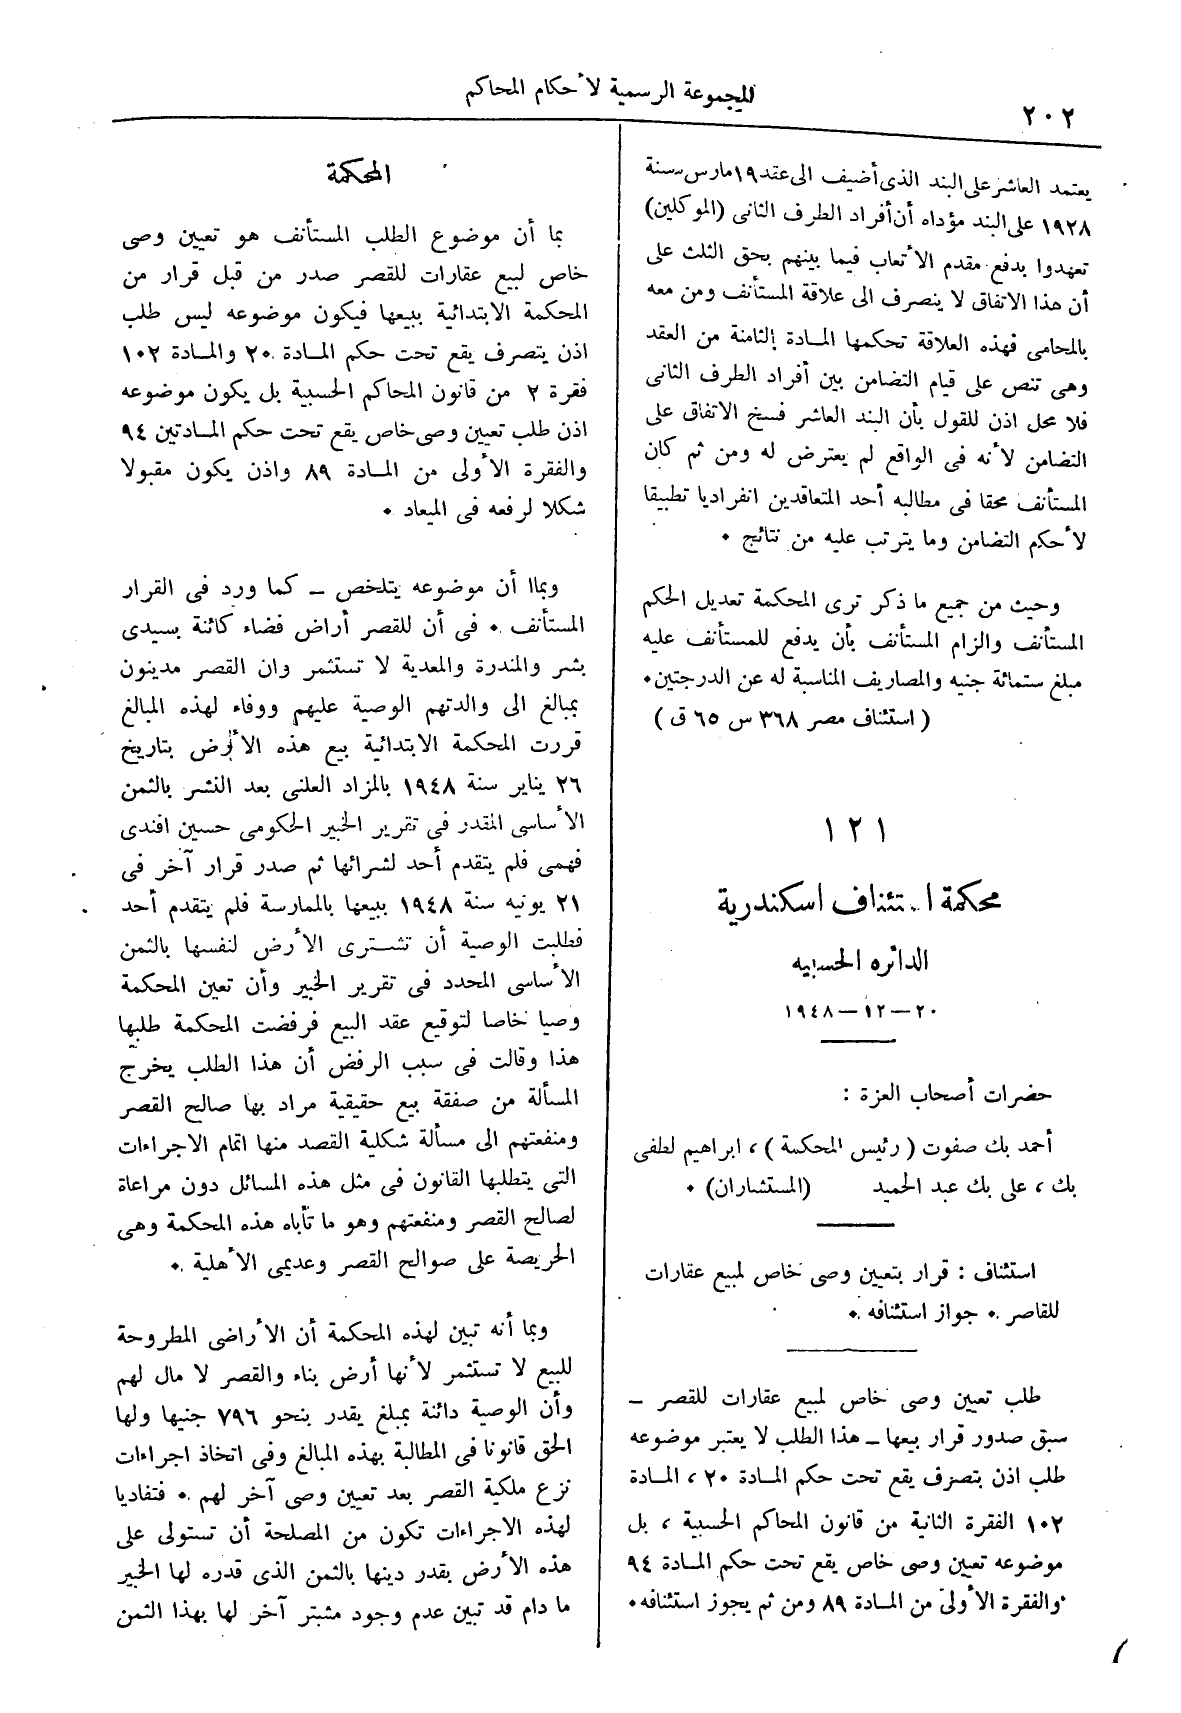 ٢٠٢
المجموعة الرسمية لأحكام المحاكم
يعتمد العاشر على البند الذى أضيف الى عقد ١٩ مارس سنة
١٩٢٨ على البند مؤداه أن أفراد الطرف الثانى (الموكلين)
تعهدوا بدفع مقدم الأتعاب فيما بينهم بحق الثلث على
أن هذا الاتفاق لا ينصرف الى علاقة المستأنف ومن معه
بالمحامى فهذه العلاقة تحكمها المادة الثامنة من العقد
وهى تنص على قيام التضامن بين أفراد الطرف الثانى
فلا محل اذن للقول بأن البند العاشر فسخ الاتفاق على
التضامن لأنه فى الواقع لم يعترض له ومن ثم كان
المستأنف محقا فى مطالبه أحد المتعاقدين انفراديا تطبيقا
لأحكم التضامن وما يترتب عليه من نتائج ٠
وحيث من جميع ما ذكر ترى المحكمة تعديل الحكم
المستأنف والزام المستأنف بأن يدفع للمستأنف عليه
مبلغ ستمائة جنيه والمصاريف المناسبة له عن الدرجتين ٠
( استئناف مصر ٣٦٨ س ٦٥ ق )
١٢١
محكمة ا تئناف اسكندرية
الدائره الحسبيه
٢٠ – ١٢ – ١٩٤٨
حضرات أصحاب العزة :
أحمد بك صفوت ( رئيس المحكمة ) ، ابراهيم لطفى
بك ، على بك عبد الحميد (المستشاران) ٠
استئناف : قرار بتعيين وصى خاص لمبيع عقارات
للقاصر ٠ جواز استئنافه ٠
طلب تعيين وصى خاص لمبيع عقارات للقصر –
سبق صدور قرار بيعها – هذا الطلب لا يعتبر موضوعه
طلب اذن بتصرف يقع تحت حكم المادة ٢٠ ، المادة
١٠٢ الفقرة الثانية من قانون المحاكم الحسبية ، بل
موضوعه تعيين وصى خاص يقع تحت حكم المادة ٩٤
والفقرة الأولى من المادة ٨٩ ومن ثم يجوز استئنافه ٠
المحكمة
بما أن موضوع الطلب المستأنف هو تعيين وصى
خاص لبيع عقارات للقصر صدر من قبل قرار من
المحكمة الابتدائية ببيعها فيكون موضوعه ليس طلب
اذن يتصرف يقع تحت حكم المادة ٢٠ والمادة ١٠٢
فقرة ٢ من قانون المحاكم الحسبية بل يكون موضوعه
اذن طلب تعيين وصى خاص يقع تحت حكم المادتين ٩٤
والفقرة الأولى من المادة ٨٩ واذن يكون مقبولا
شكلا لرفعه فى الميعاد ٠
وبماا أن موضوعه يتلخص – كما ورد فى القرار
المستأنف ٠ فى أن للقصر أراض فضاء كائنة بسيدى
بشر والمندرة والمعدية لا تستثمر وان القصر مدينون
بمبالغ الى والدتهم الوصية عليهم ووفاء لهذه المبالغ
قررت المحكمة الابتدائية بيع هذه الأرض بتاريخ
٢٦ يناير سنة ١٩٤٨ بالمزاد العلنى بعد النشر بالثمن
الأساسى المقدر فى تقرير الخبير الحكومى حسين افندى
فهمى فلم يتقدم أحد لشرائها ثم صدر قرار آخر فى
٢١ يونيه سنة ١٩٤٨ ببيعها بالممارسة فلم يتقدم أحد
فطلبت الوصية أن تشترى الأرض لنفسها بالثمن
الأساسى المحدد فى تقرير الخبير وأن تعين المحكمة
وصيا خاصا لتوقيع عقد البيع فرفضت المحكمة طلبها
هذا وقالت فى سبب الرفض أن هذا الطلب يخرج
المسألة من صفقة بيع حقيقية مراد بها صالح القصر
ومنفعتهم الى مسألة شكلية القصد منها اتمام الاجراءات
التى يتطلبها القانون فى مثل هذه المسائل دون مراعاة
لصالح القصر ومنفعتهم وهو ما تأباه هذه المحكمة وهى
الحريصة على صوالح القصر وعديمى الأهلية ٠
وبما أنه تبين لهذه المحكمة أن الأراضى المطروحة
للبيع لا تستثمر لأنها أرض بناء والقصر لا مال لهم
وأن الوصية دائنة بمبلغ يقدر بنحو ٧٩٦ جنيها ولها
الحق قانونا فى المطالبة بهذه المبالغ وفى اتخاذ اجراءات
نزع ملكية القصر بعد تعيين وصى آخر لهم ٠ فتفاديا
لهذه الاجراءات تكون من المصلحة أن تستولى على
هذه الأرض بقدر دينها بالثمن الذى قدره لها الخبير
ما دام قد تبين عدم وجود مشتر آخر لها بهذا الثمن